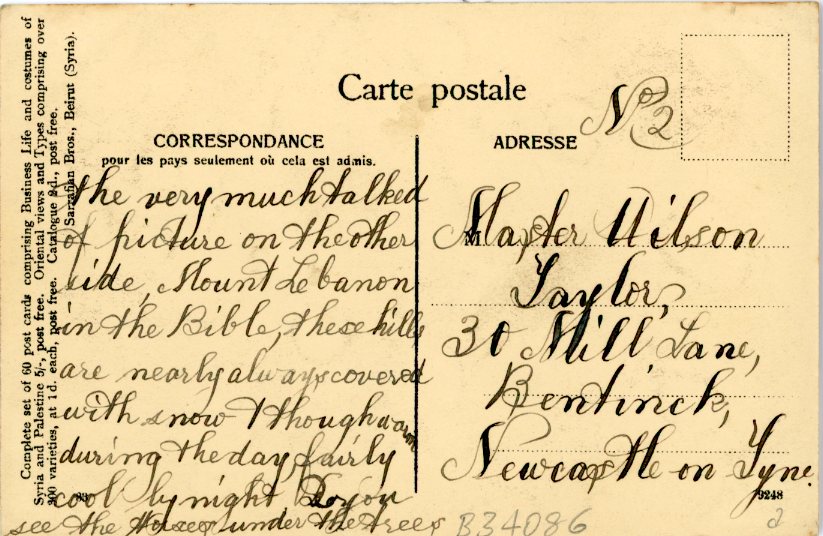 Complete set of 60 post cards comprising Business Life and costumes of
Syria and Palestine 5/-, post free. Oriental views and Types comprising over
300 varieties, at 1d. each, post free. Catalogue 2d., post free.
Sarrafian Bros., Beirut (Syria).
Carte postale
No 2
CORRESPONDANCE
pour les pays seulement où cela est admis.
ADRESSE
the very much talked
of picture on the other
side, Mount Lebanon
in the Bible, these hills
are nearly always covered
with snow & though warm
during the day fairly
cool by night Do you
see the Horses under the trees
M
Master Wilson
Taylor,
30 Mill Lane,
Bentinck,
Newcastle on Tyne.
9248
B34086